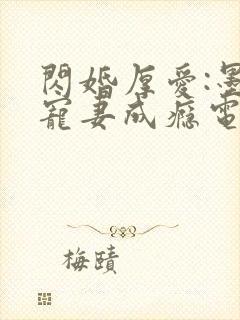 閃婚厚愛:墨
寵妻成癮電
梅賾